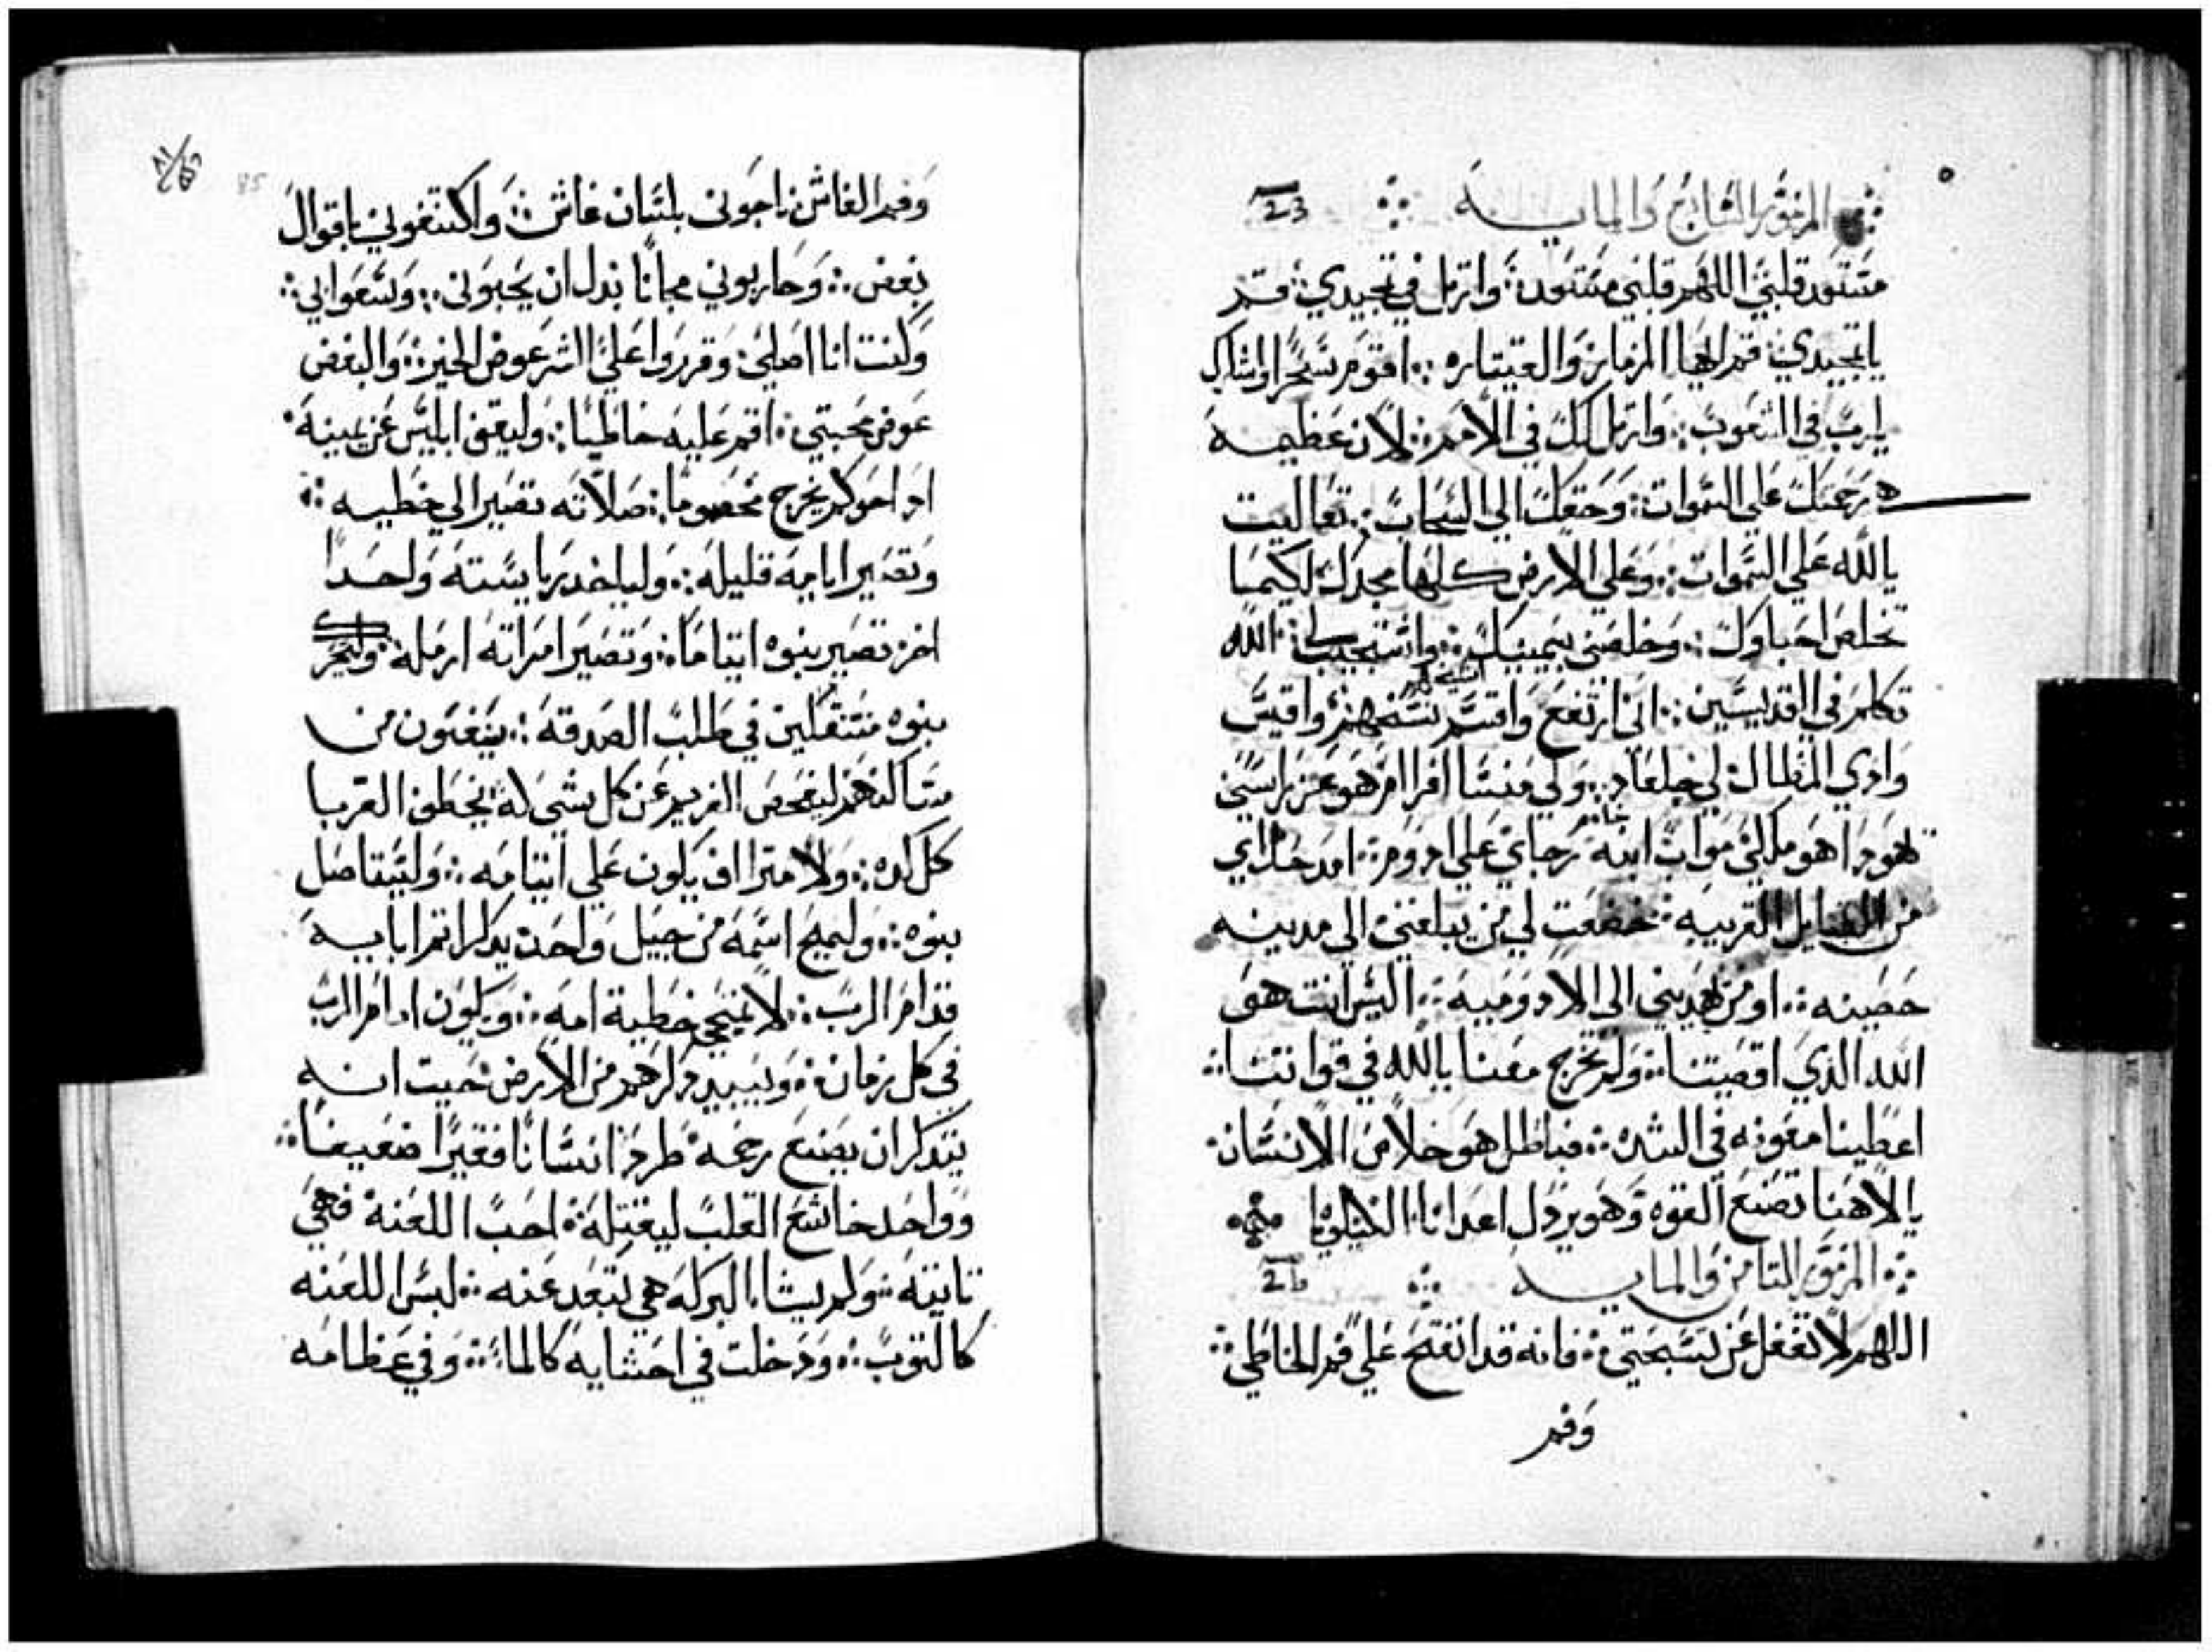 المزمور السابع والمايه
مستعد قلبي اللهم قلبي مستعد وارتل في تمجيدي قم
يا تمجيدي قم ايها المزمار والقيتاره اقوم سحرا واشكرك
يا رب في الشعوب وارتل لك في الامم لان عظيمه
هي رحمتك علي السموات وحقك الي السحاب تعاليت
يا الله علي السموات وعلي الارض كلها مجدك لكيما
تخلص احباوك وخلصني بيمينك واستجيب لي الله
تكلم في القديسين اني ارتفع واقسم واقيس
وادي المظال لي جلعاد ولي منسا افرام هو عز راسي
يهودا هو ملكي مواب ابنة رجاي علي ادوم امد حداي
من القبايل الغريبه خضعت لي من يبلغني الي مدينه
حصينه او من يهديني الي الادوميه اليس انت هو
الله الذي اقصيتنا ولم تخرج معنا يا الله في قواتنا
اعطينا معونه في الشده فباطل هو خلاص الانسان
يا الاهنا تصنع القوه وهو يردل اعدانا
المزمور التامن والمايه
اللهم لا تغفل عن تسبحتي فانه قد انفتح علي فم الخاطي
وفم
وفم الغاش ناجوني بلسان غاش واكتنفوني باقوال
بغض وحاربوني مجانا بدل ان يحبوني وسعوا بي
وكنت انا اصلي وقرروا علي الشر عوض الخير والبغض
عوض محبتي اقم عليه خاطيا وليقف ابليس عن يمينه
ادا حوكم يخرج مخصوما صلاته تصير الي خطيه
وتصير ايامه قليله ولياخد رياسته واحدا
اخر تصير بنوه ايتاما وتصير امراته ارمله
بنوه متنقلين في طلب الصدقه ينفون من
مساكنهم ليفحص الغريم عن كل شي له يخطف الغربا
كل كده ولا متراف يكون علي ايتامه وليستاصل
بنوه وليمح اسمه من جيل واحد يدكر اتم ابايه
قدام الرب لا تمتحي خطية امه ويكون امام الرب
في كل زمان ويبيد دكرهم من الارض حيت انه
يتدكر ان يصنع رحمه طرد انسانا فقيرا ضعيفا
وواحد خاشع القلب ليقتله احب اللعنه فهي
تاتيه ولم يشا البركه هي تبعد عنه لبس اللعنه
كالتوب ودخلت في احشايه كالما وفي عظامه